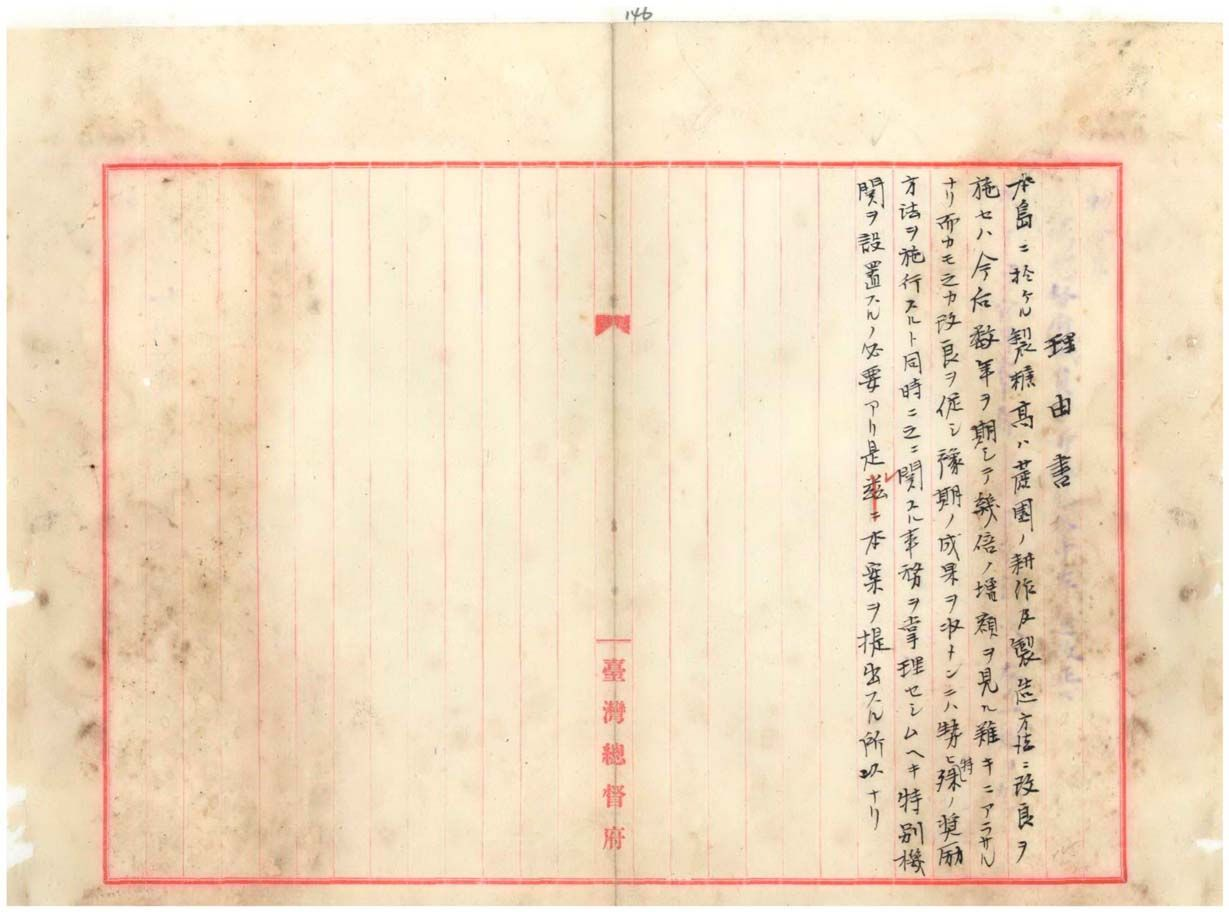 146
理由書
本島ニ於ケル製糖高ハ蔗園ノ耕作及製造方法ニ改良ヲ
施セハ今后数年ヲ期シテ幾倍ノ増額ヲ見ル難キニアラサル
ナリ而カモ之カ改良ヲ促シ豫期ノ成果ヲ収メンニハ勢ヒ特殊ノ奨励
方法ヲ施行スルト同時ニ之ニ関スル事務ヲ掌理セシムヘキ特別機
関ヲ設置スルノ必要アリ是玆ニ本案ヲ提出スル所以ナリ
臺灣總督府